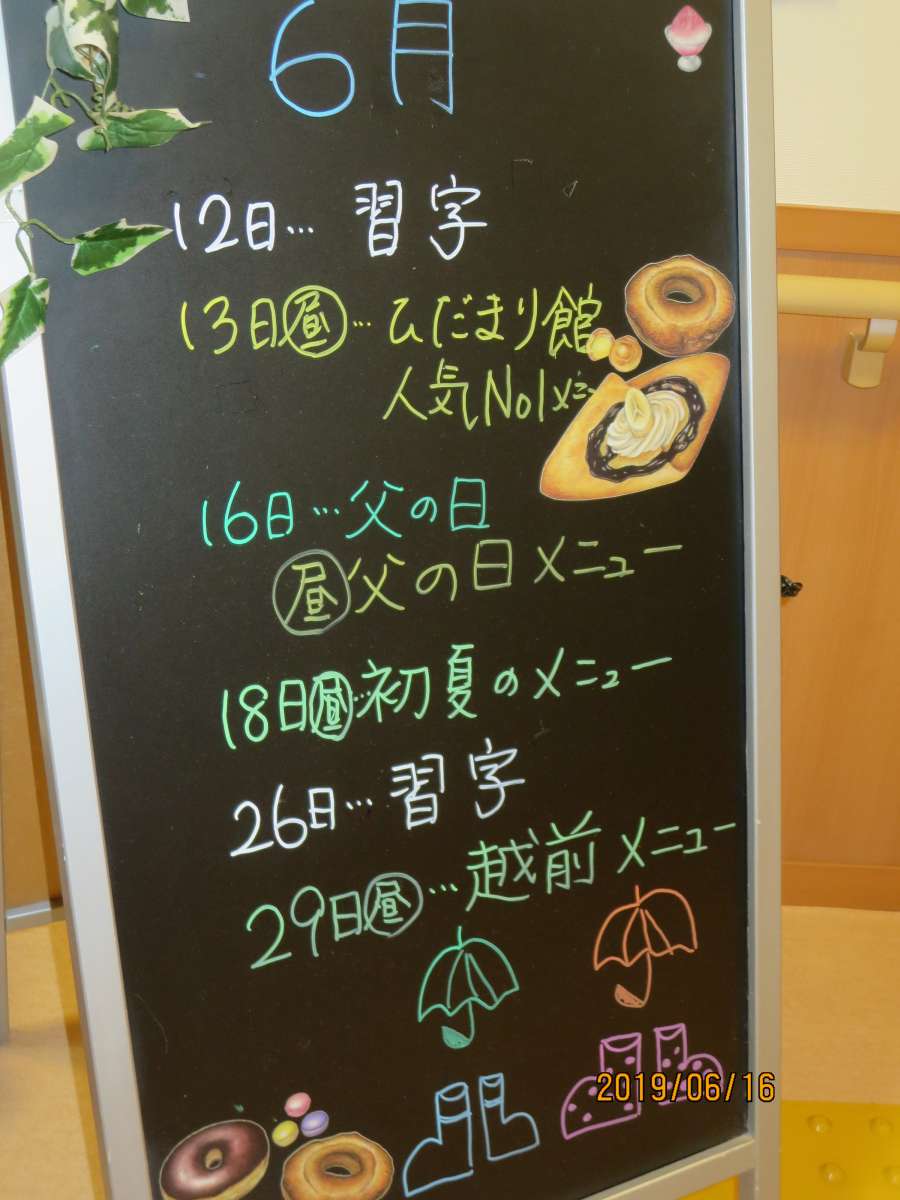 6月
12日… 習字
13日㊐昼…ひだまり館
人気No1メニュー
16日…父の日
昼父の日メニュー
18日昼…初夏のメニュー
26日…習字
29日昼…越前メニュー
2019/06/16